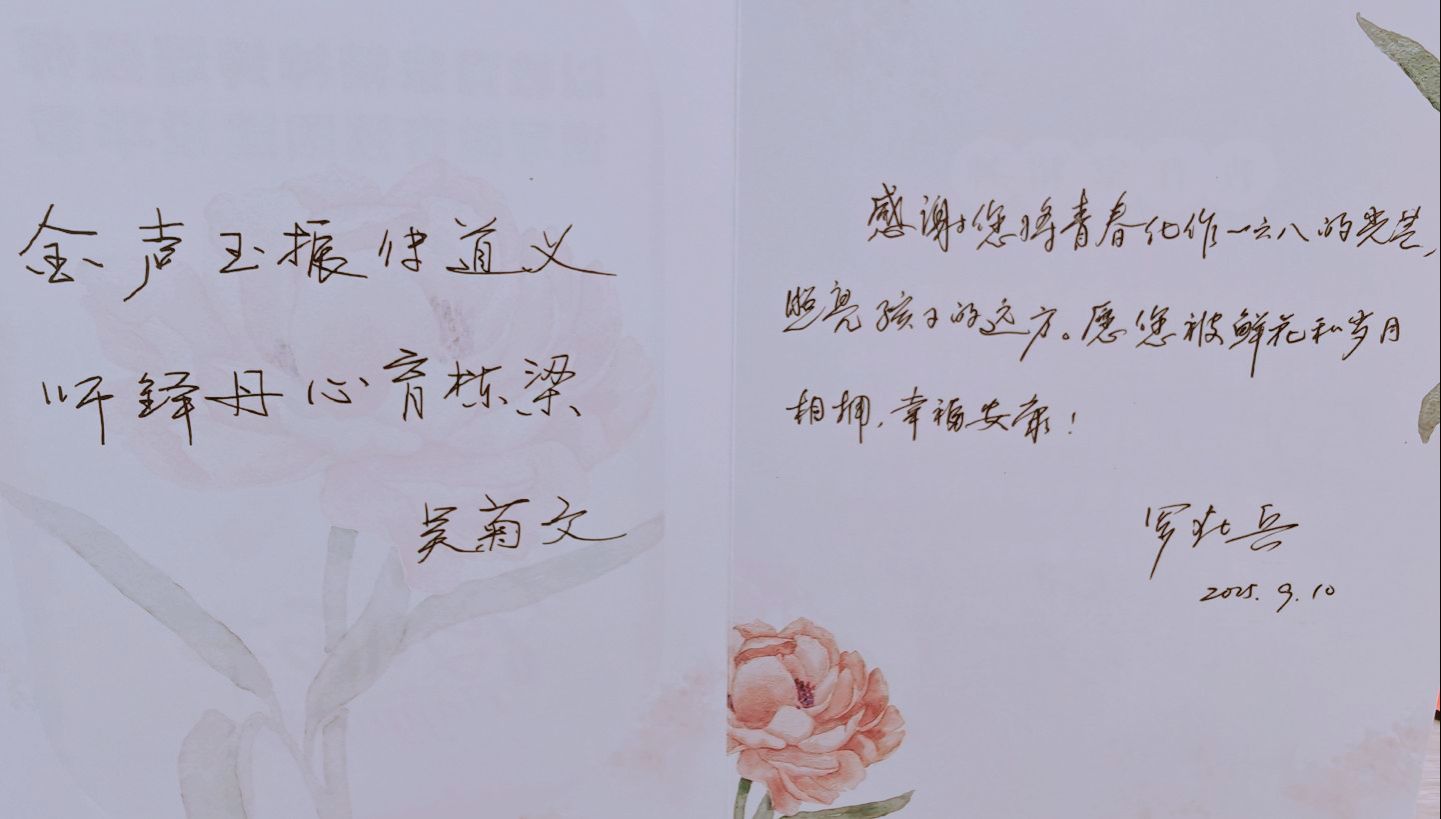 金声玉振传道义
师铎丹心育栋梁
吴菊文
感谢您将青春化作一六八的光芒,
照亮孩子的远方。愿您被鲜花和岁月
相拥,幸福安康!
罗兵
2025.9.10